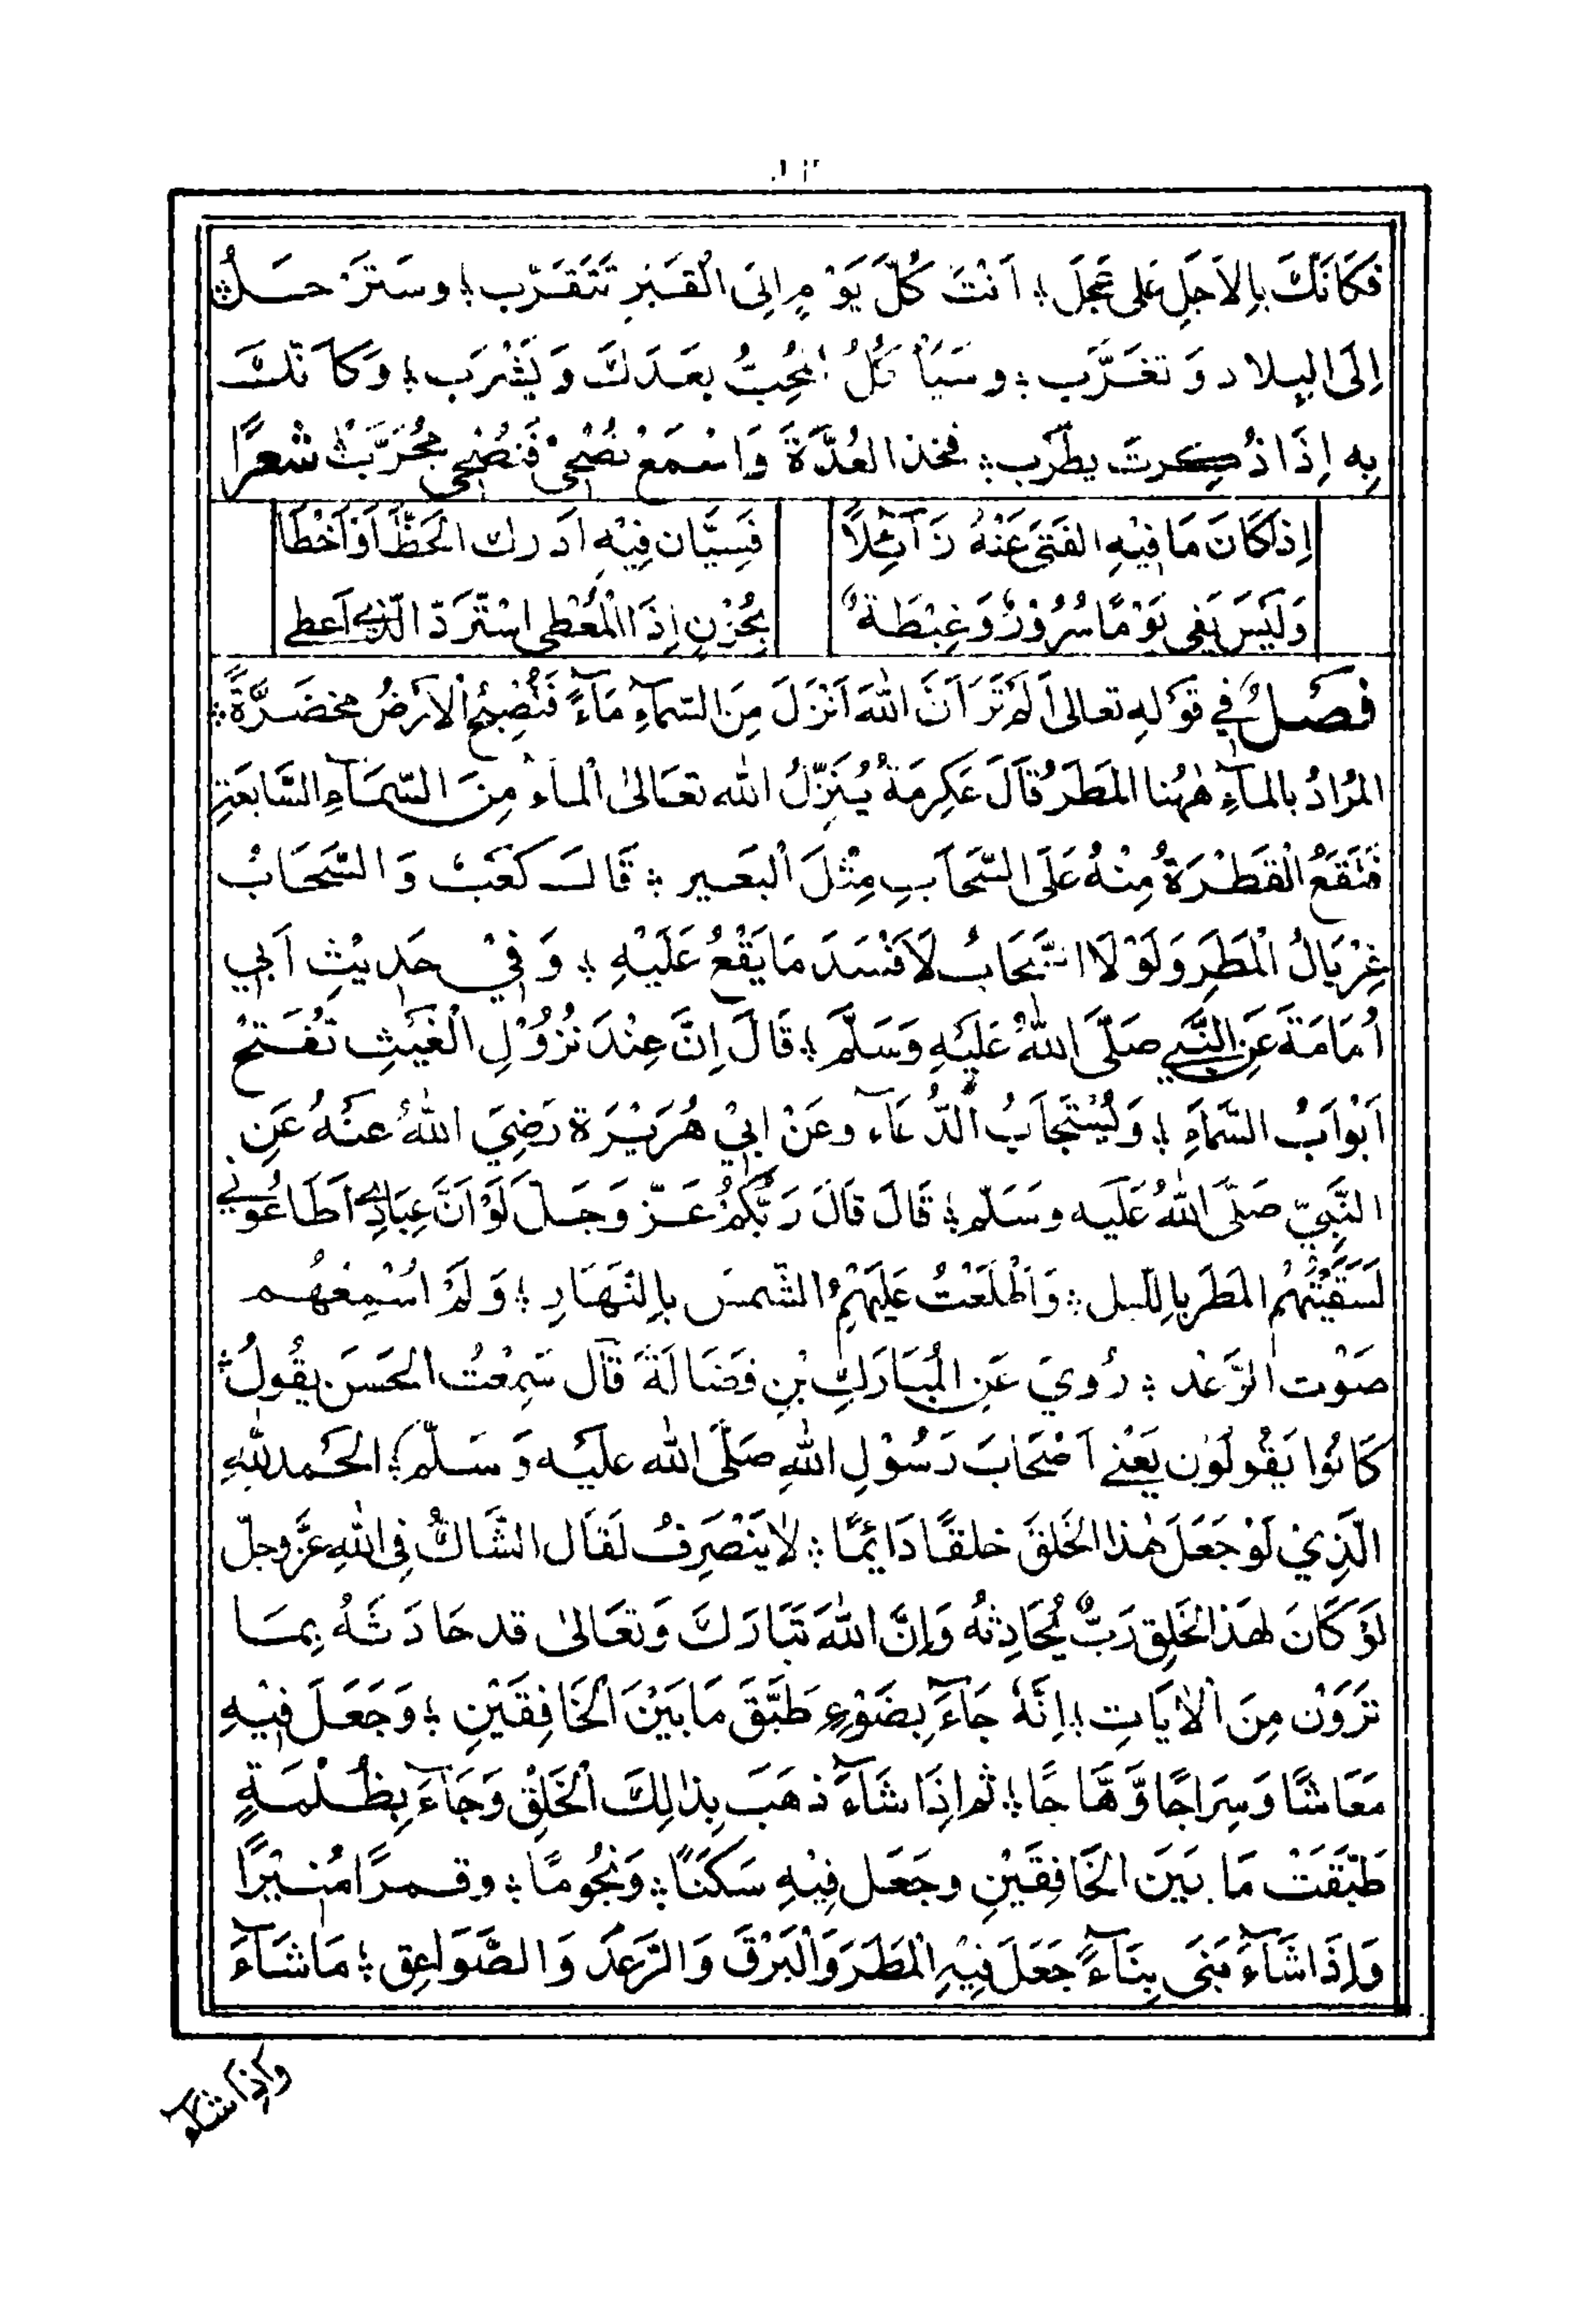 فَكَاَنَّكَ بِالاَجَلِ عَلى عَجَلَ ؛ اَنْتَ كُلَّ يَوْمٍ اِلىَ الْقَبْرِ تَتَقَرَّب ؛ وسَتَرْحَلُ ؛
اِلَى البِلادِ وَتغَرَّب ؛ وسَيَأكُلُ المُحِبُّ بعَدَكَ وَيَشْرَب ؛ وَكَاَنَّكَ
بِه اِذَا ذُكِرتَ يطْرَب ؛ فخذ العُدَّةَ وَاسْمَعْ نُصْحِىْ فَنُصْحِى مُجَرَّبٌ شعرًا
اِذَا كَانَ مَا فِيْهِ الفَتَى عَنْهُ زَآئِلاً
فَسِيَّان فِيْهِ اَدرك الحَظَّ اَوْ اَخْطَا
وَلَيَسَ يَفِى يَوْمًا سُرُوْرٌ وَغِبْطَةٌ
بِحُزْنٍ اِذَا الْمُعْطِى اسْتَرَدَّ الَّذِي اَعطى
فصَلٌ فِي قوَلِهِ تعالى اَلَمْ تَرَ اَنَّ اللهَ اَنْزَلَ مِنَ السَّمَآءِ مَآءً فَتُصْبِحُ الْاَرْضُ مخضَرَّةً ؛
المُرَادُ بالمآءِ هٰهُنا المَطَرُ قَالَ عَكِرِمَةُ يُنَزِّلُ الله تعَالىٰ الْماءَ مِنَ السَّمَآءِ السَّابعَةِ
فَتَقَعُ الْقَطْرَةُ مِنْهُ عَلَى السَّحَابِ مِثْلَ الْبَعَير ؛ قَالَ كَعْبٌ وَالسَّحَابُ
غِرْبَالُ الْمَطَرِ وَلَوْلَا السَّحَابُ لَاَفْسَدَ مَا يَقْعُ عَلَيْهِ ؛ وَفِيْ حَدِيْثِ اَبِي
اُمَامَةَ عَنِ النَّبِي صَلَّى اللهُ عَلَيْهِ وَسَلَّمَ ؛ قَالَ اِنَّ عِنْدَ نُزُوْلِ الْغَيْثِ تُفْتَحُ
اَبْوَابُ السَّمَاءِ ؛ وَيُسْتَجَابُ الدُّعَآء وعَنْ ابِيْ هُرَيْرَة رَضِيَ اللهُ عنْهُ عَنِ
النَّبِيِّ صَلَّى اللهُ عَلَيه وسَلَّم ؛ قَالَ قَالَ رَبُّكُمْ عَزّ وَجَلَ لَوْ اَنَّ عِبَادِي اَطَاعُوني
لَسَقَيْتُهُمْ المَطَر بِاللَّيل ؛ وَاَطْلَعْتُ عَلَيْهِمُ الشَّمسَ بِالنَهَارِ ؛ وَلَمْ اُسْمِعْهُم
صَوْت الرَّعْد ؛ رُوِيَ عَنِ المُبَارَكِ بْنِ فَضَالَةَ قَالَ سَمِعْتُ الحَسَنَ يقُولُ ؛
كَانُوا يَقُولُوْن يَعْنِي اَصْحَابَ رَسُوْلِ اللهِ صَلَّى الله عَلَيْه وَسَلَّم ؛ الحَمد للهِ
الَّذِيْ لَوْ جَعَلَ هٰذا الخَلقَ خلقًا دَائمًا ؛ لاَ يَنْصَرِفُ لَقاَل الشَّاكُّ فِى اللهِ عَزَّ وجلّ
لَوْ كَانَ لهَذا الخَلِق رَبٌّ يُحَادِثهُ وَاِنَّ اللهَ تَبَارَكَ وَتعَالىٰ قد حَادَثَهُ بِمَا
تَرَوْن مِنَ الْاٰيَاتِ ؛ اِنَّهُ جَآءَ بِضَوْءٍ طَبَّقَ مَا بَيْنَ الْخَافِقَيْنِ ؛ وَجَعَلَ فِيْهِ
مَعَاشًا وَسِرَاجًا وَّهَّاجًا ؛ ثم اِذَا شَآءَ ذهَبَ بِذٰلِكَ الْخَلِقْ وَجَآءَ بِظُلْمَةٍ
طَبَّقَتْ مَا بَيَنَ الخَافِقَيْنِ وجَعَل فِيْهِ سَكَنًا ؛ وَنجُومًا ؛ وقمرًا مُنِيْرًا
وَاِذَا شَآءَ بَنَى بِنَآءً جَعَلَ فِيْهِ الْمَطَرَ وَالْبَرْقَ وَالرَّعدَ وَالصَّوَاعِق ؛ مَا شَآءَ
وَاِذا شآء